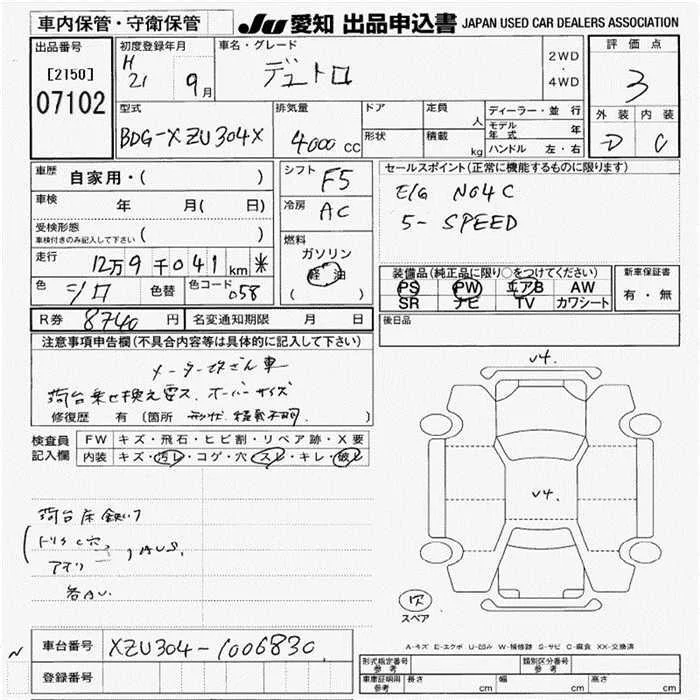 車内保管・守衛保管
JU 愛知 出品申込書 JAPAN USED CAR DEALERS ASSOCIATION
出品番号
[2150]
07102
初度登録年月
H
21 9月
車名・グレード
デュトロ
2WD
・
4WD
評価点
3
外装 内装
D C
型式
BDG-XZU304X
排気量
4000 CC
ドア
形状
定員
人
積載
kg
ディーラー・並行
モデル年式 年
ハンドル 左・右
車歴
自家用・( )
車検 年 月( 日)
受検形態
車検付きのみ記入して下さい ( )
走行 12万9千041km *
色 シロ 色替 色コード 058
シフト F5
冷房 AC
燃料
ガソリン
軽油
( )
セールスポイント(正常に機能するものに限ります)
E/G N04C
5-SPEED
装備品(純正品に限り○をつけてください)
PS PW エアB AW
SR ナビ TV カワシート
新車保証書
有・無
R券 8740円 名変通知期限 月 日
後日品
注意事項申告欄(不具合内容等は具体的に記入して下さい)
メーター改ざん車
荷台乗せ換え要ス、オーバーサイズ
修復歴 有 (箇所 )
検査員
記入欄
FW キズ・飛石・ヒビ割・リペア跡・X要
内装 キズ・汚レ・コゲ・穴・スレ・キレ・破レ
荷台床
アオリ
各AU.
V4.
V4.
穴
スペア
A-キズ E-エクボ U-凹み W-補修跡 S-サビ C-腐食 XX-交換済
車台番号 XZU304-1006830
登録番号
形式指定番号
参考
類別区分番号
参考
車庫証明用
参考
長さ cm 幅 cm 高さ cm